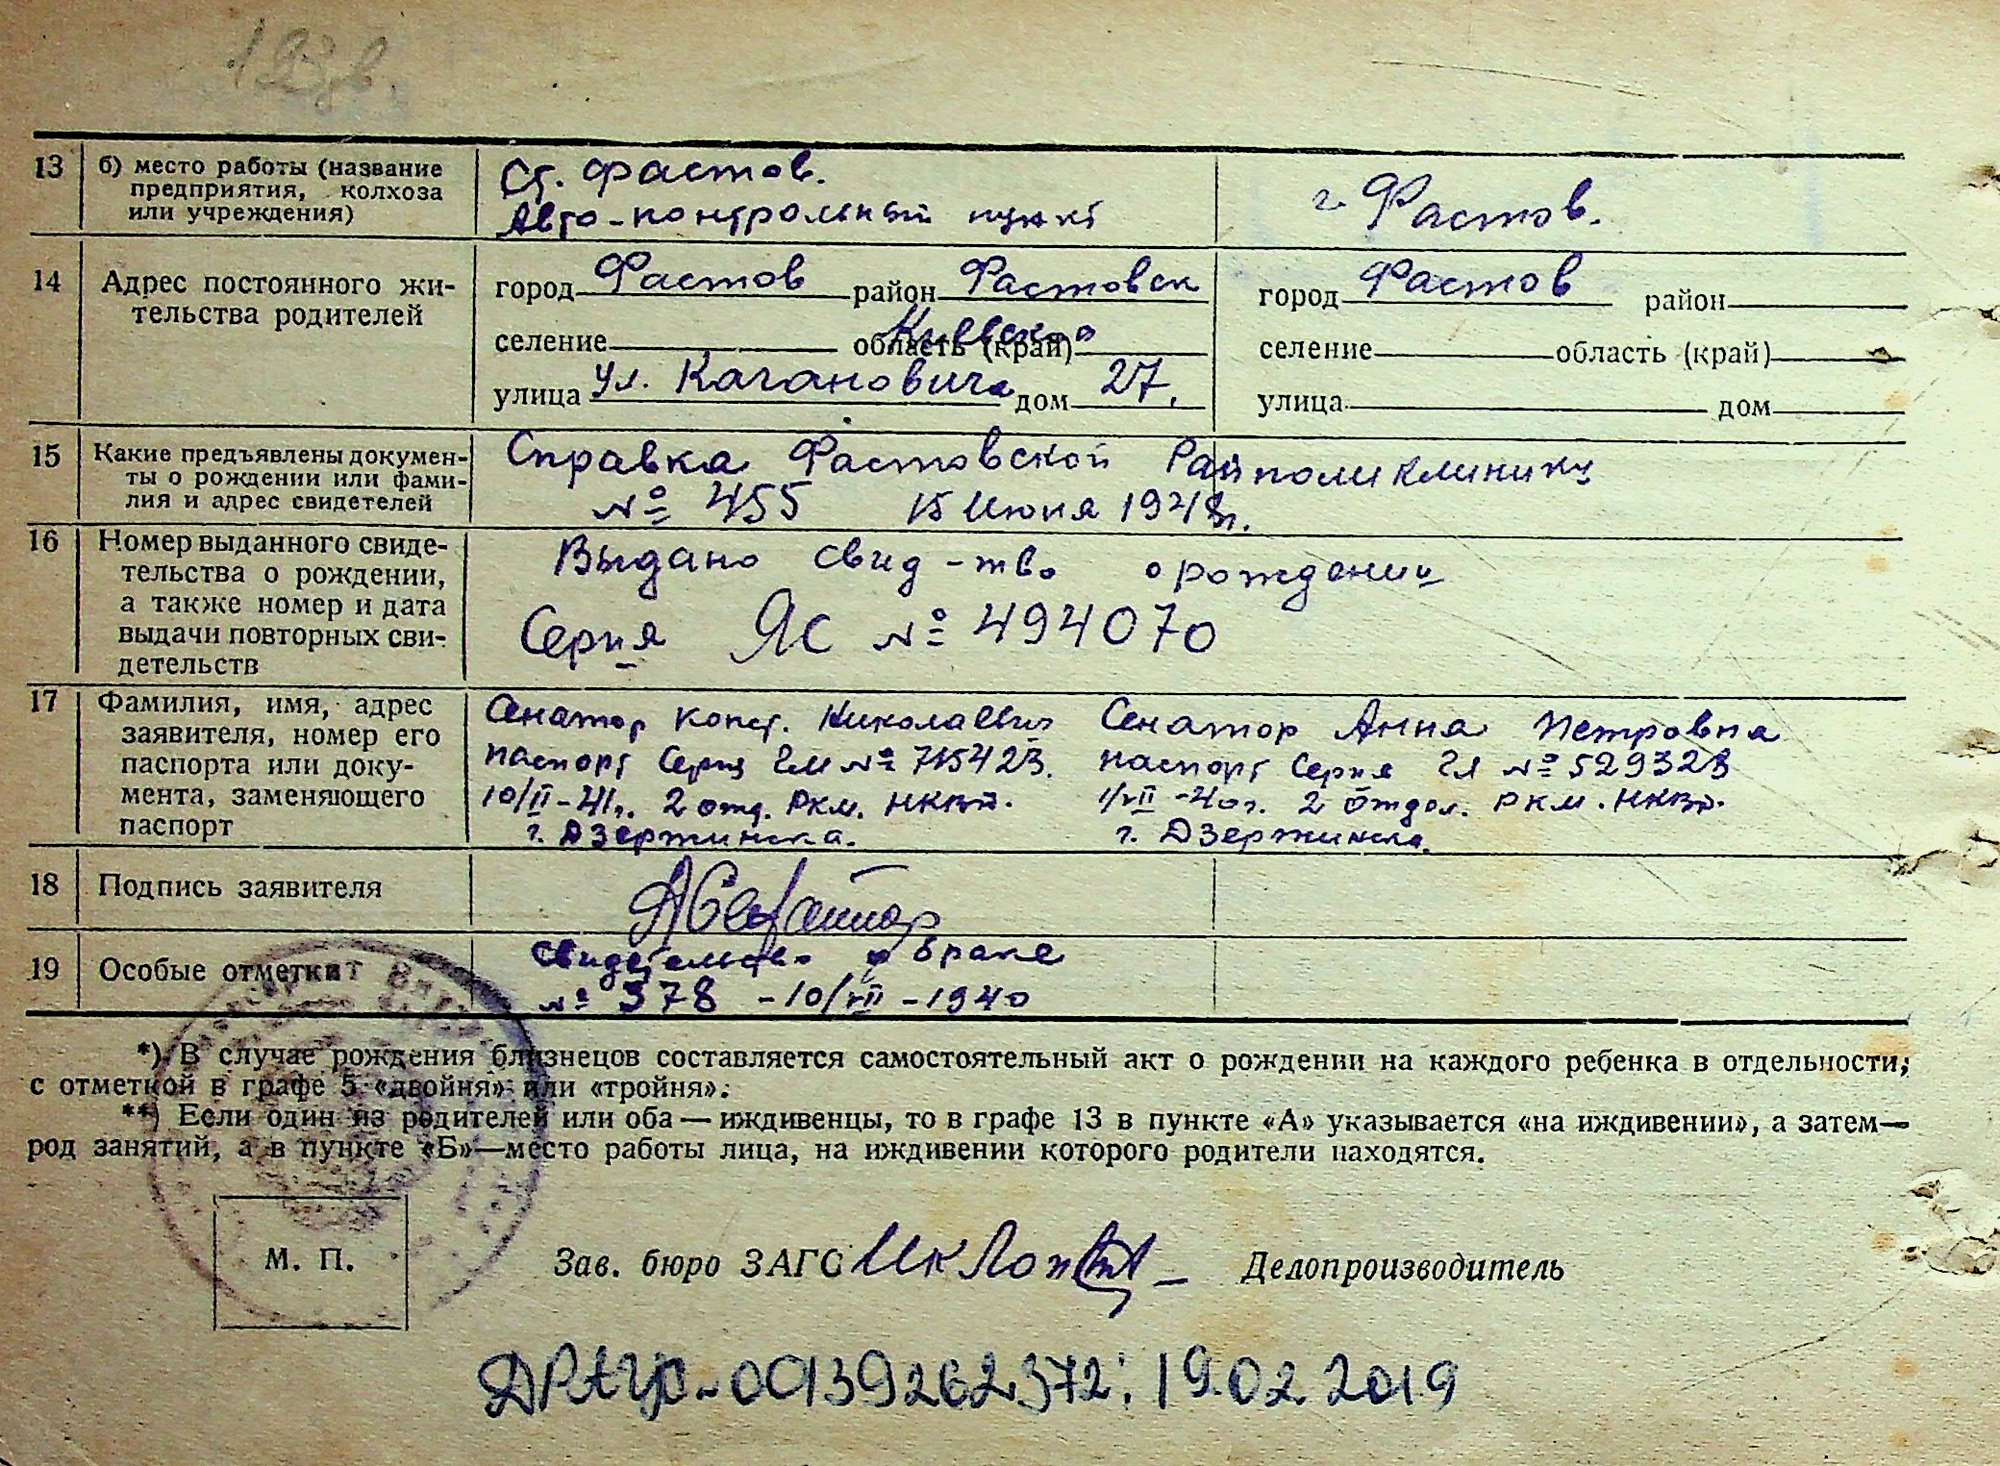 13 б) место работы (название
предприятия, колхоза
или учреждения)
Ст. Фастов.
Авто-контрольный пункт
г. Фастов.
14 Адрес постоянного жи-
тельства родителей
город Фастов район Фастовск
селение область (край) Киевская
улица ул. Кагановича дом 27.
город Фастов район
селение область (край)
улица дом
15 Какие предъявлены докумен-
ты о рождении или фами-
лия и адрес свидетелей
Справка Фастовской Райполиклиники
№ 455 15 Июня 1948г.
16 Номер выданного свиде-
тельства о рождении,
а также номер и дата
выдачи повторных сви-
детельств
Выдано свид-тво о рождении
Серия ЯС № 494070
17 Фамилия, имя, адрес
заявителя, номер его
паспорта или доку-
мента, заменяющего
паспорт
Сенатор Конст. Николаевич
паспорт Серия ГМ № 715423.
10/II-41г. 2 отд. РКМ. НКВД.
г. Дзержинска.
Сенатор Анна Петровна
паспорт Серия ГЛ № 529323
1/VII-40г. 2 отдел. РКМ. НКВД.
г. Дзержинска.
18 Подпись заявителя
19 Особые отметки
Свидетельство о браке
№ 378 - 10/VII - 1940
*) В случае рождения близнецов составляется самостоятельный акт о рождении на каждого ребенка в отдельности,
с отметкой в графе 5 «двойня» или «тройня».
**) Если один из родителей или оба — иждивенцы, то в графе 13 в пункте «А» указывается «на иждивении», а затем—
род занятий, а в пункте «Б»—место работы лица, на иждивении которого родители находятся.
М. П.
Зав. бюро ЗАГС Делопроизводитель
00139262372; 19.02.2019